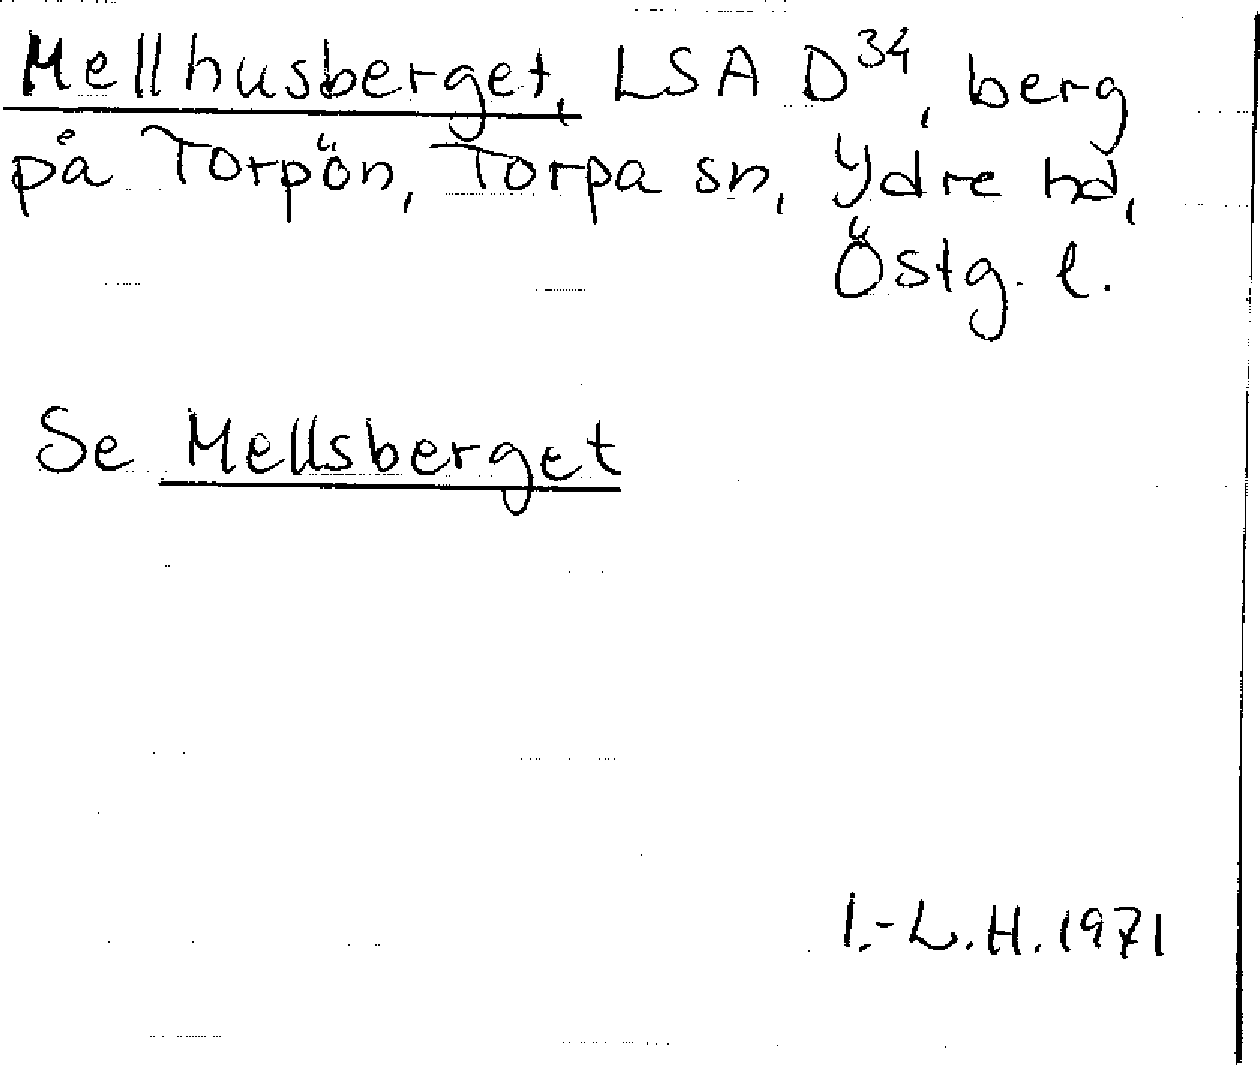 Mellhusberget, LSA D³⁴, berg
på Torpön, Torpa sn, Ydre hd,
Östg. l.
Se Mellsberget
I.-L.H. 1971